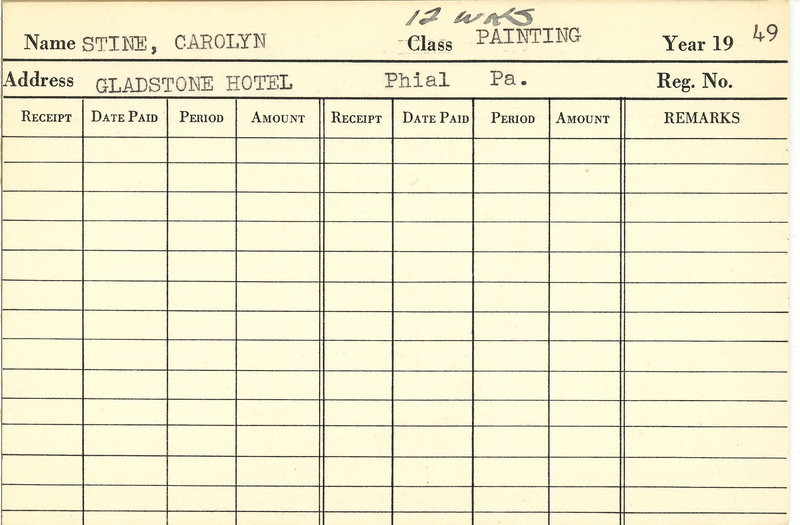 12 WKS
Name STINE, CAROLYN Class PAINTING Year 19 49
Address GLADSTONE HOTEL Phial Pa. Reg. No.
RECEIPT DATE PAID PERIOD AMOUNT RECEIPT DATE PAID PERIOD AMOUNT REMARKS